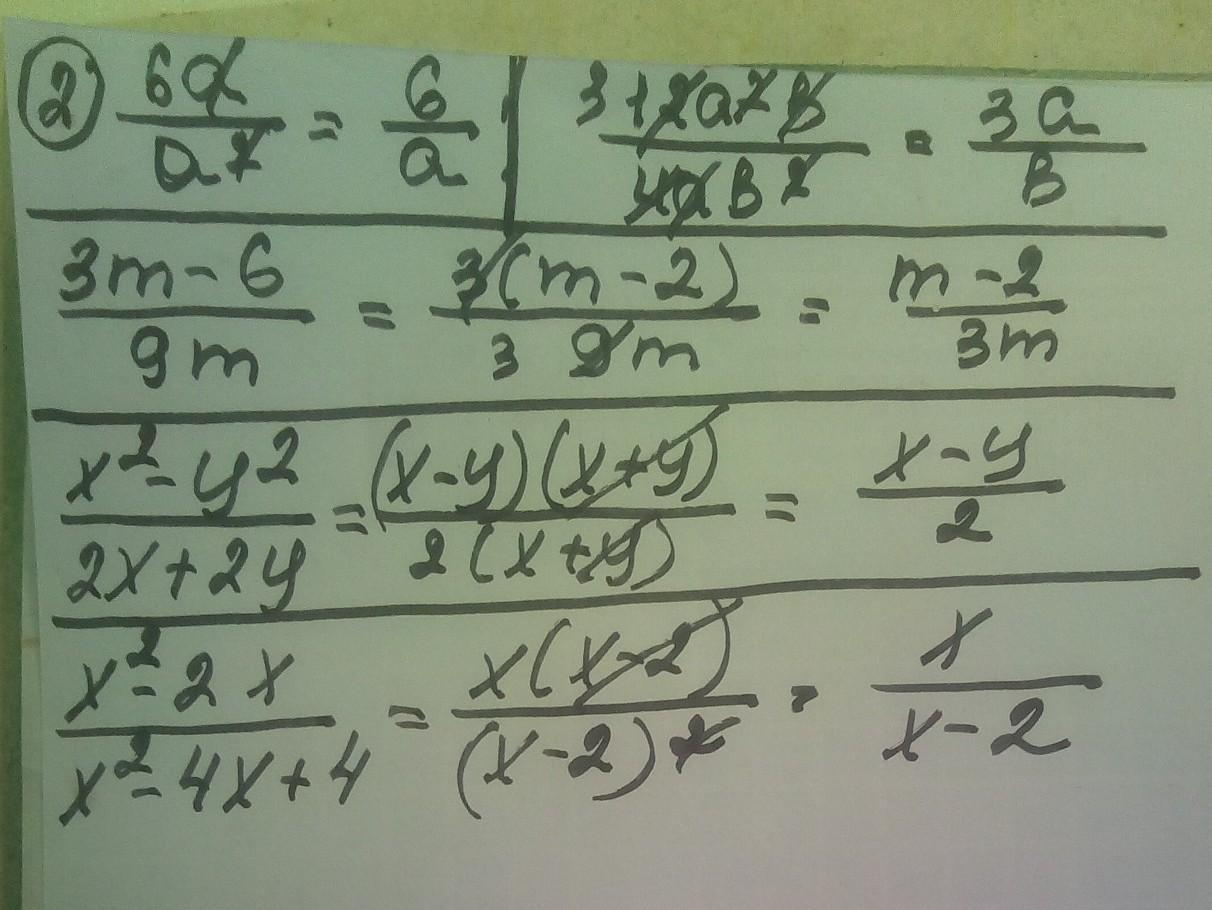 ② 6a/a² = 6/a | 3 12a²b/4ab² = 3a/b
3m-6/9m = 3(m-2)/3 9m = m-2/3m
x²-y²/2x+2y = (x-y)(x+y)/2(x+y) = x-y/2
x²-2x/x²-4x+4 = x(x-2)/(x-2)² = x/x-2